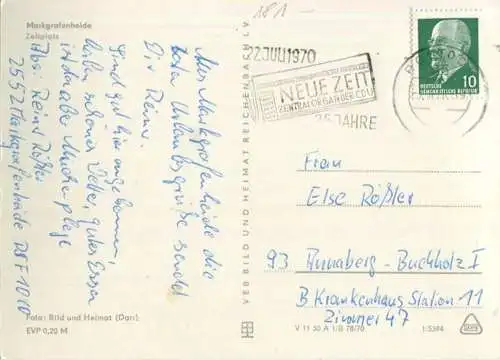 Markgrafenheide
Zeltplatz
181-
22. JULI 1970
NEUE ZEIT
ZENTRALORGAN DER CDU
25 JAHRE
10
DEUTSCHE
DEMOKRATISCHE REPUBLIK
Aus Markgrafenheide die
Urlaubsgrüße sendet
Dir Reni.
Sind gut hier angekommen,
haben schönes Wetter, gutes Essen
ideale
Abs: Reni Rößler
2552 Markgrafenheide
Frau
Else Rößler
93 Annaberg-Buchholz I
B Krankenhaus Station 11
Zimmer 47
VEB BILD UND HEIMAT REICHENBACH I. V.
Foto: Bild und Heimat (Darr)
EVP 0,20 M
V 11 50 A 1/B 78/70
1/5394